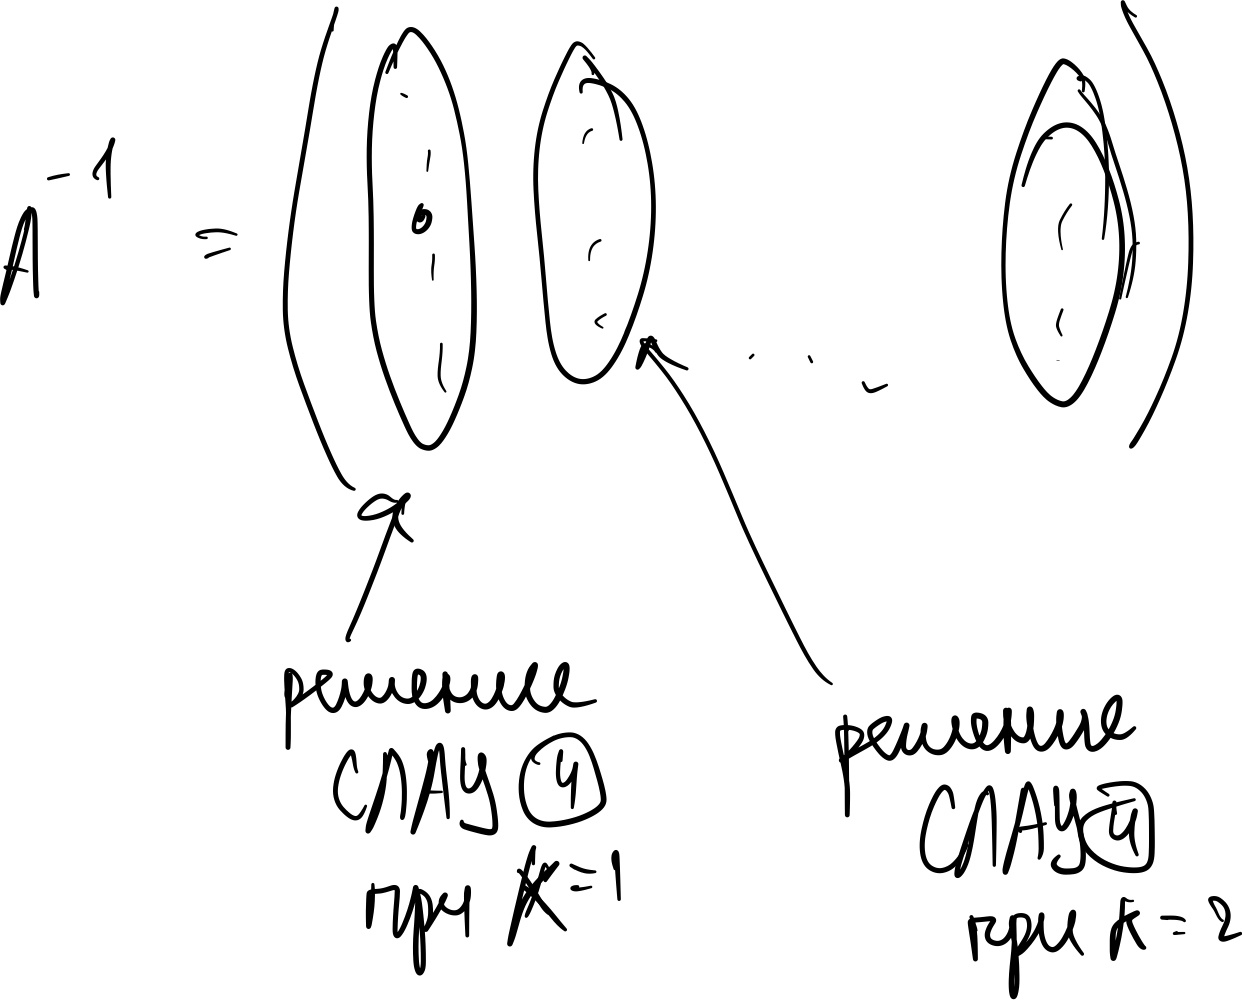 A⁻¹ = ( ... )
решение
СЛАУ ④
при k=1
решение
СЛАУ ④
при k=2